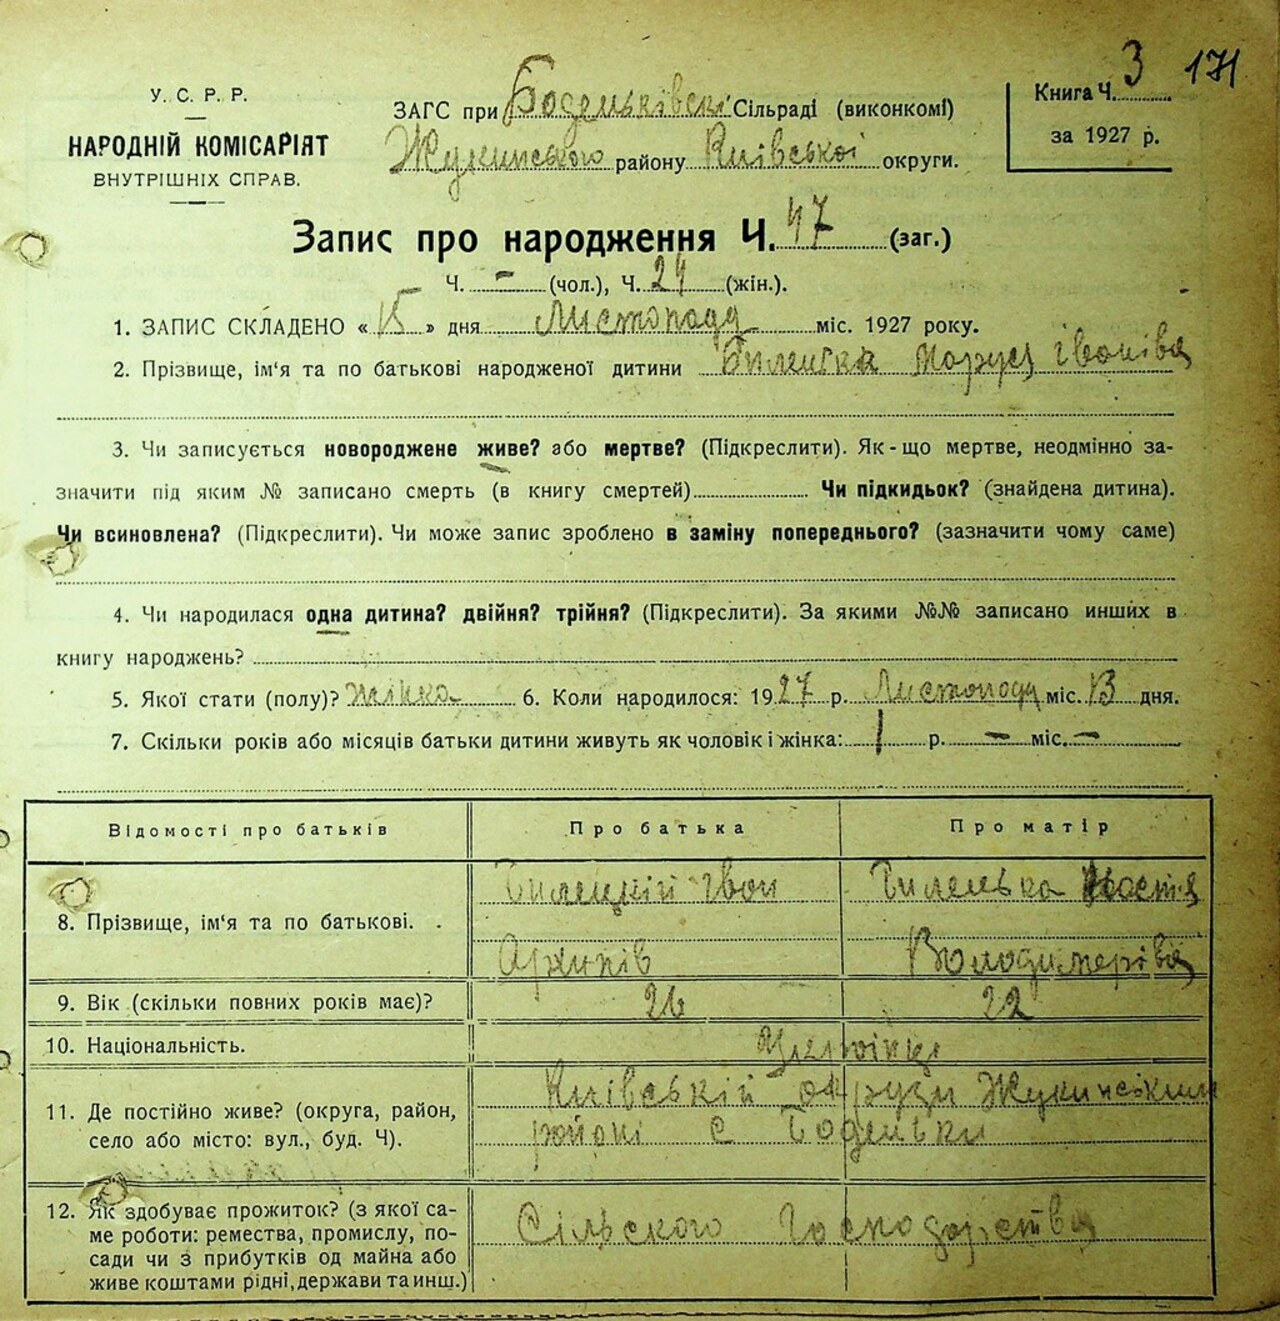 У. С. Р. Р.
НАРОДНІЙ КОМІСАРІЯТ
ВНУТРІШНІХ СПРАВ.
ЗАГС при Боденьківскі Сільраді (виконкомі)
Жукинського району Київської округи.
Книга Ч. 3 171
за 1927 р.
Запис про народження Ч. 47 (заг.)
Ч. – (чол.), Ч. 24 (жін.).
1. ЗАПИС СКЛАДЕНО « 15 » дня Листопада міс. 1927 року.
2. Прізвище, ім'я та по батькові народженої дитини Маруся Іванівна
3. Чи записується новороджене живе? або мертве? (Підкреслити). Як-що мертве, неодмінно за-
значити під яким № записано смерть (в книгу смертей) Чи підкидьок? (знайдена дитина).
Чи всиновлена? (Підкреслити). Чи може запис зроблено в заміну попереднього? (зазначити чому саме)
4. Чи народилася одна дитина? двійня? трійня? (Підкреслити). За якими №№ записано инших в
книгу народжень?
5. Якої стати (полу)? жінка 6. Коли народилося: 1927 р. Листопада міс. 13 дня.
7. Скільки років або місяців батьки дитини живуть як чоловік і жінка: 1 р. – міс. –
Відомості про батьків Про батька Про матір
8. Прізвище, ім'я та по батькові. Іван Настя
Архипів Володимерівна
9. Вік (скільки повних років має)? 26 22
10. Національність.
11. Де постійно живе? (округа, район, Київській округи Жукинський
село або місто: вул., буд. Ч). районі с Боденьки
12. Як здобуває прожиток? (з якої са- Сільского Господарства
ме роботи: ремества, промислу, по-
сади чи з прибутків од майна або
живе коштами рідні, держави та инш.)